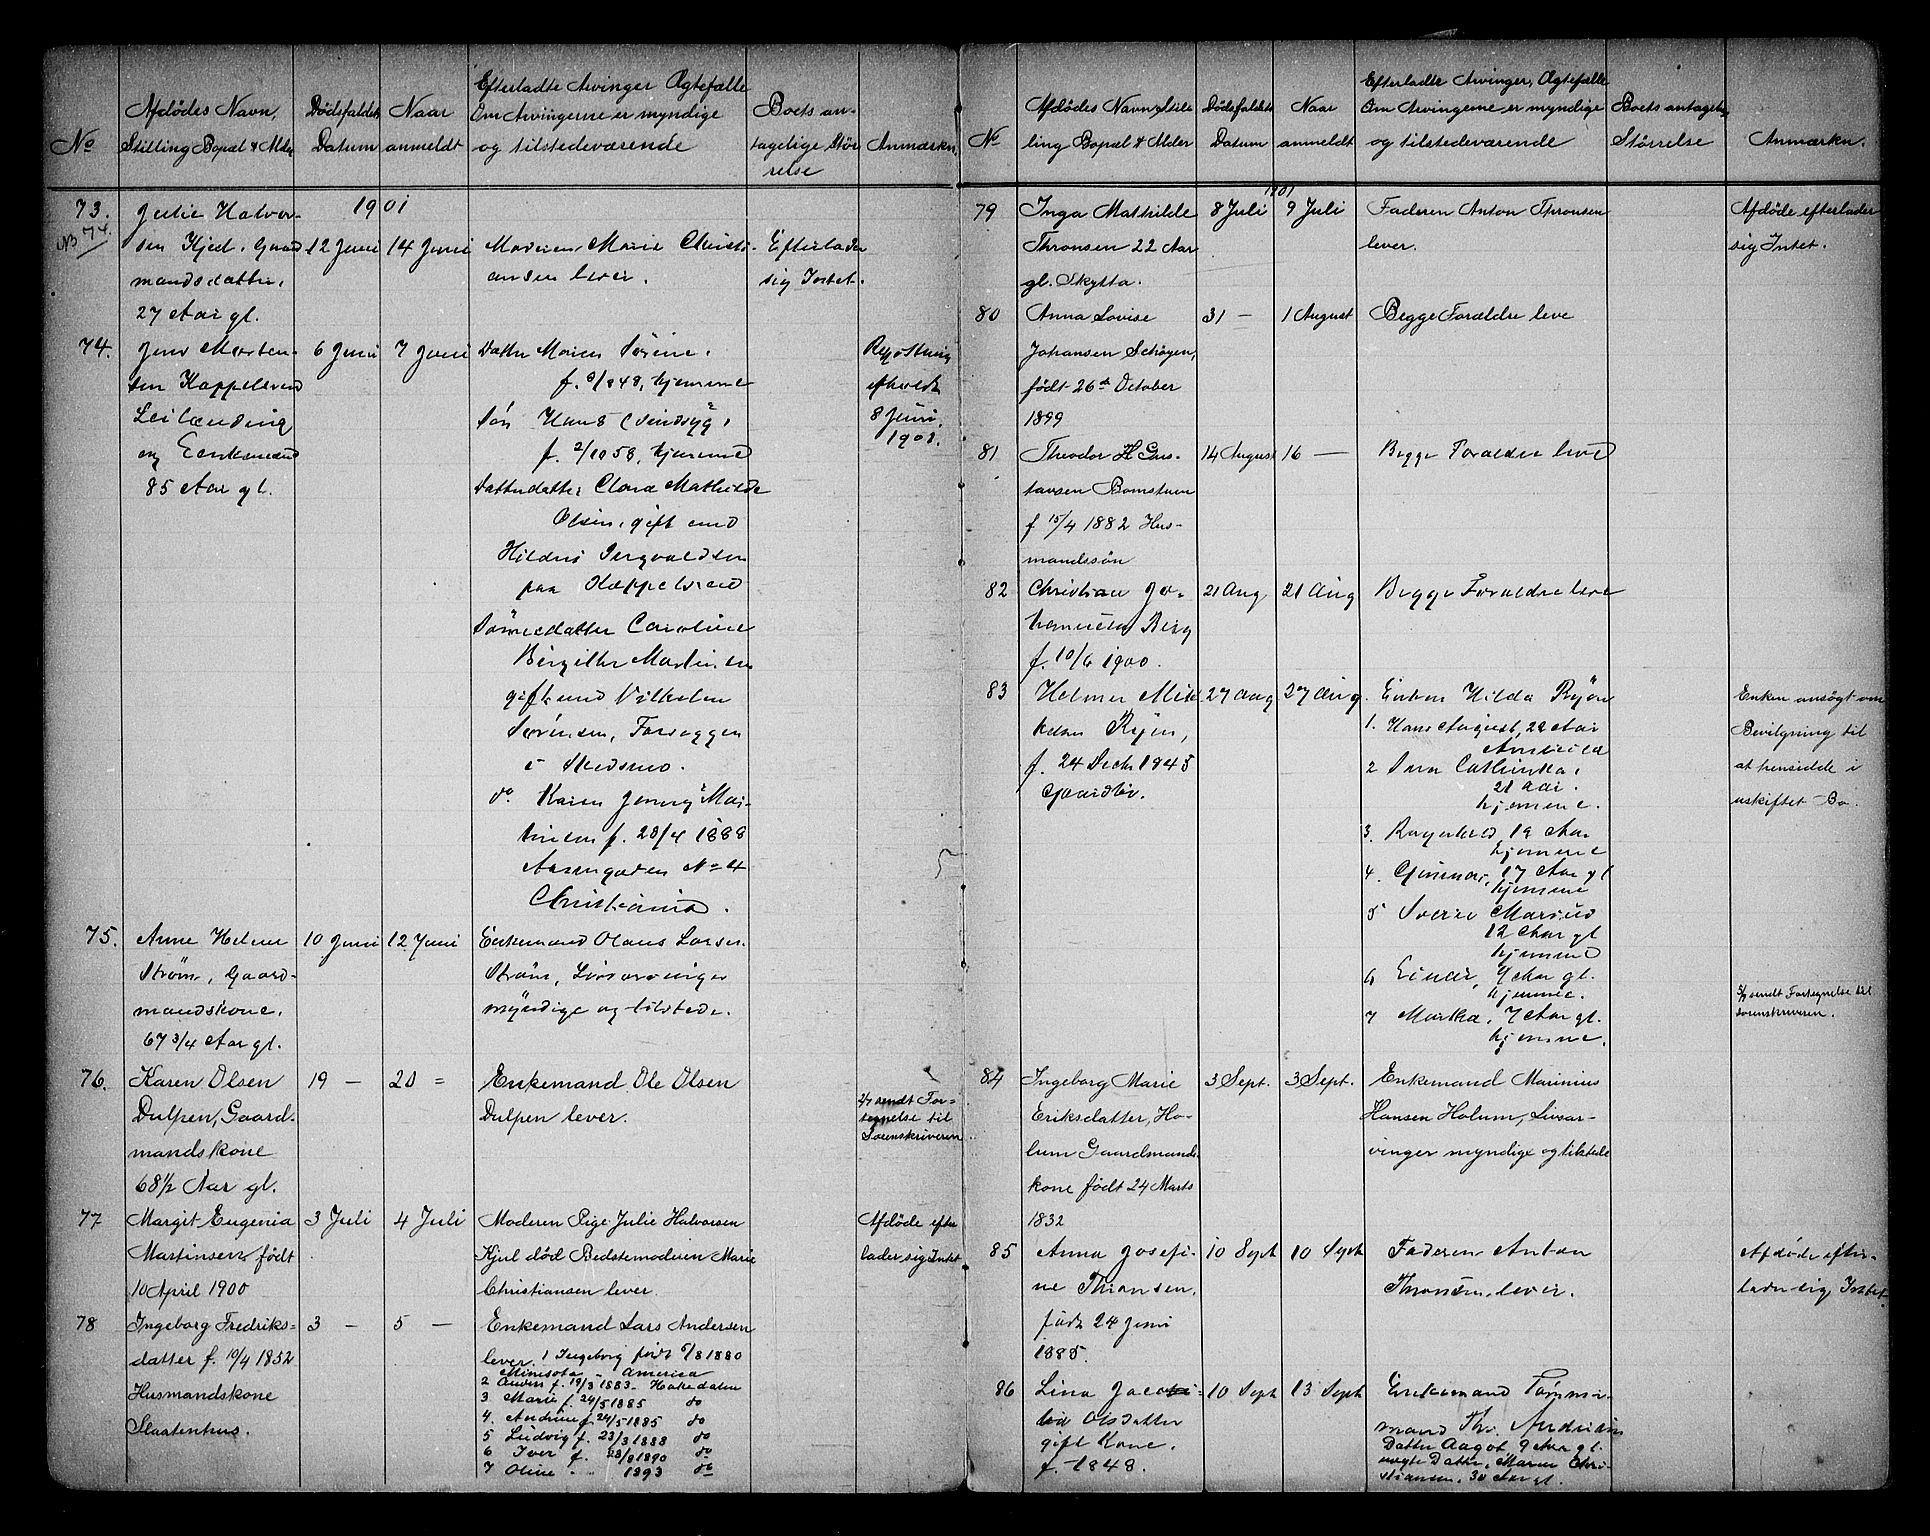 No
Afdödes Navn,
Stilling Bopæl & Alder
Dödsfaldets
Datum
Naar
anmeldt
Efterladte Arvinger Ægtefælle
Om Arvingerne er myndige
og tilstedeværende
Boets an-
tagelige Stör-
relse
Anmærkn.
73.
NB 74.
Julie Halvor-
sen Kjed, Gaard
mandsdatter,
27 Aar gl.
1901
12 Juni
14 Juni
Moderen, Marie Christi-
ansen lever.
Efterlader
sig Intet.
74.
Jens Morten-
sen Kappelsrud
Leilænding
og Enkemand
85 Aar gl.
6 Juni
7 Juni
Datter Maren Sörine,
f. 6/848, hjemme
Sön Hans (Sindsyg)
f. 2/10 58, hjemme
Datterdatter Clara Mathilde
Olsen, gift med
paa Kappelsrud
Sönnedatter Caroline
Birgitte Martinsen
gift med Vilhelm
Sörensen, Farseggen
i Skedsmo.
do Karen Jenny Mar-
tinsen f. 28/4 1888
Aasengaden No 4
Christiania.
afholdt
8 Juni
1901.
75.
Anne Helene
Ström, Gaard-
mandskone,
67 3/4 Aar gl.
10 Juni
12 Juni
Enkemand Olaus Larsen
Ström, Livsarvinger
myndige og tilstede.
76.
Karen Olsen
Dulpen, Gaard-
mandskone
68½ Aar gl.
19 —
20 =
Enkemand Ole Olsen
Dulpen lever.
2/7 sendt For-
tegnelse til
Sorenskriveren
77
Margit Eugenia
Martinsen, födt
10 April 1900
3 Juli
4 Juli
Moderen Pige Julie Halvorsen
Kjed död Bedstemoderen Marie
Christiansen lever.
Afdöde efter
lader sig Intet
78
Ingeborg Fredriks-
datter f. 10/4 1852
Husmandskone
Slaatenhus.
3 —
5 —
Enkemand Lars Andersen
lever. 1 Ingeborg födt 6/8 1880
Minisota - America
2 Anders f. 19/3 1883 - Hakedalen
3 Marie f. 24/5 1885 do
4. Andrine f. 24/5 1885 do
5 Ludvig f. 23/3 1888 do
6 Iver f. 23/8 1890 do
7 Oline 1893 do
No
Afdödes Navn, Stil-
ling Bopæl & Alder
Dödsfaldets
Datum
Naar
anmeldt
Efterladte Arvinger, Ægtefælle
Om Arvingerne er myndige
og tilstedeværende
Boets antagelig
Störrelse
Anmærkn.
79
Inga Mathilde
Thronsen 22 Aar
gl. Skytta.
1901
8 Juli
9 Juli
Faderen Anton Thronsen
lever.
Afdöde efterlader
sig Intet.
80
Anna Lovise
Johansen Schöyen,
födt 26de October
1899
31 —
1 August
Begge Forældre leve
81
Theodor H Gus-
tavsen Bomstuen
f 15/4 1882 Hus-
mandssön
14 August
16 —
Begge Forældre leve
82
Christian Jo-
hannesen Berg
f. 10/6 1900.
21 Aug
21 Aug
Begge Forældre leve
83
Helmer Mik-
kelsen Ryen,
f. 24 Decbr 1845
Gaardbr.
27 Aug
27 Aug.
Enken Hilda Ryen
1. Hans August, 22 Aar
Amerika
2 Anna Cathinka,
21 Aar.
hjemme.
3. Ragnhild, 19 Aar
hjemme
4. Gunnar, 17 Aar gl
hjemme
5 Sverre Marius
12 Aar gl
hjemme
6 Einar, 9 Aar gl.
hjemme.
7 Martha, 7 Aar gl.
hjemme.
Enken ansögt om
Bevilgning til
at hensidde i
uskiftet Bo.
5/9 sendt Fortegnelse til
Sorenskriveren.
84
Ingeborg Marie
Eriksdatter, Ho-
lum Gaardmands
kone födt 24 Marts
1832
3 Sept.
3 Sept.
Enkemand Marinius
Hansen Holum, Livsar-
vinger myndige og tilstede
85
Anna Josefi-
ne Thronsen,
födt 24 Juni
1885.
10 Sept
10 Sept
Faderen Anton
Thronsen, lever.
Afdöde efter-
lader sig Intet.
86
Lina Jaco
Olsdatter
gift Kone.
f. 1848.
10 Sept
13 Sept
Enkemand Tömmer-
mand Chr. Andersen
Datter Aagot, 9 Aar gl.
uægte Datter, Maren Chri-
stiansen, 30 Aar gl.